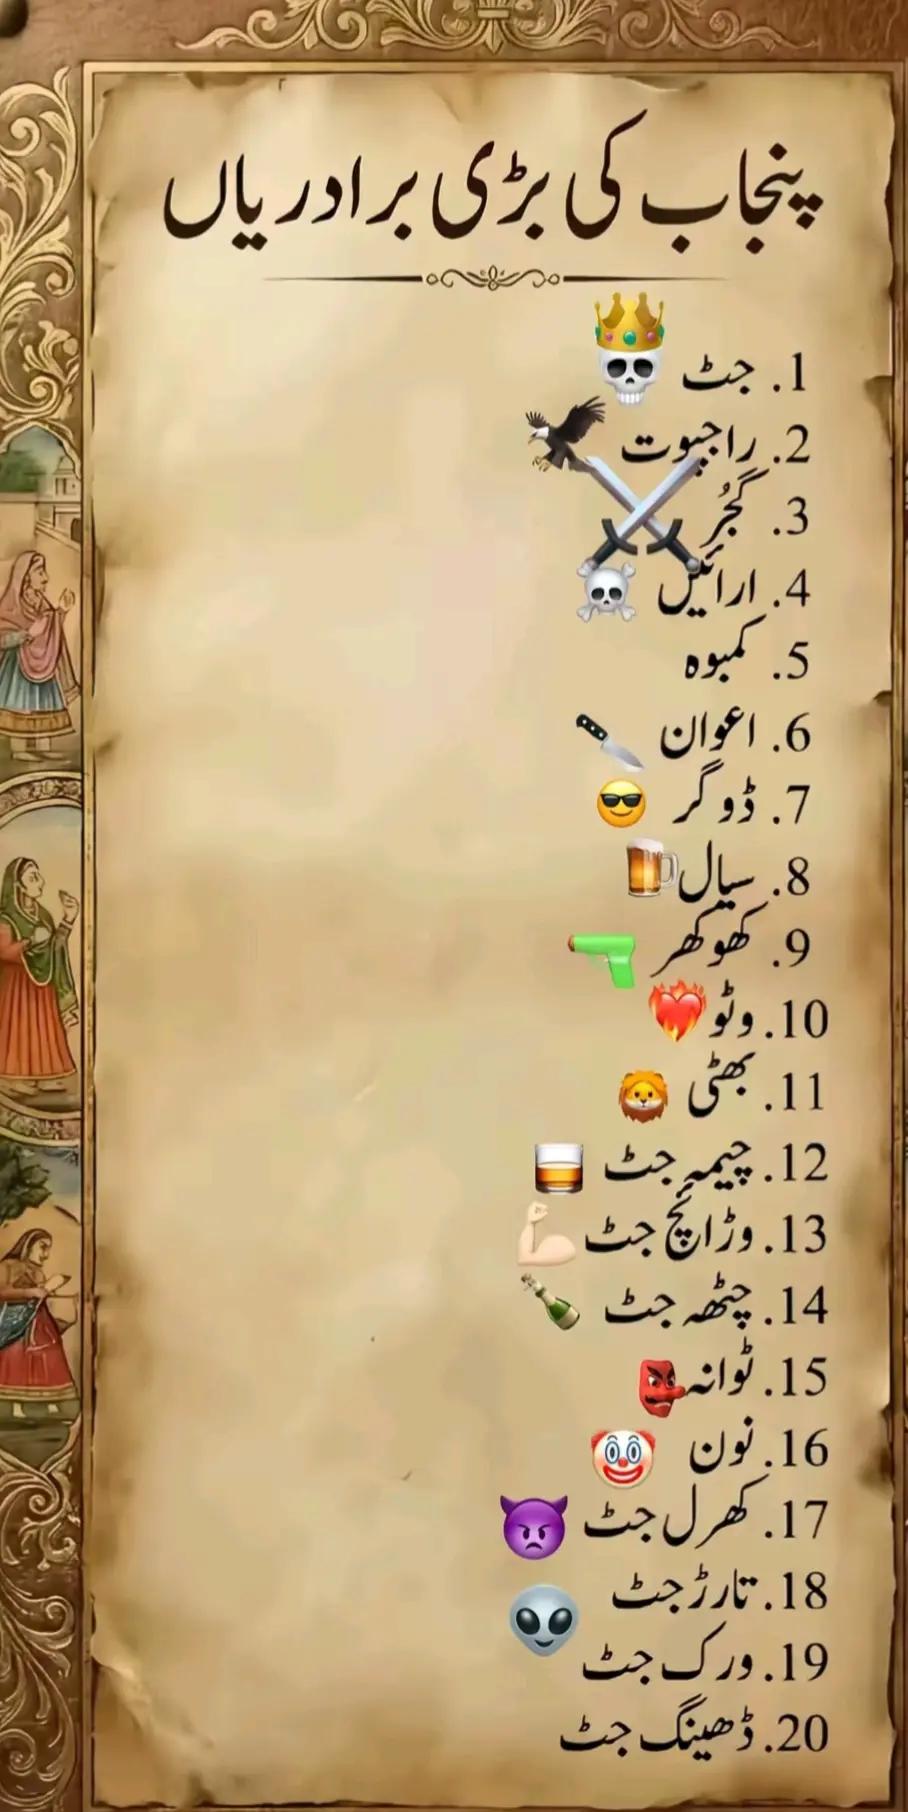 پنجاب کی بڑی برادریاں
1. جٹ 👑💀
2. راجپوت 🦅
3. گجُر ⚔️
4. ارائیں ☠️
5. کمبوہ
6. اعوان 🔪
7. ڈوگر 😎
8. سیال 🍺
9. کھوکھر 🔫
10. وٹو ❤️‍🔥
11. بھٹی 🦁
12. چیمہ جٹ 🥃
13. وڑائچ جٹ 💪🏻
14. چٹھہ جٹ 🍾
15. ٹوانہ 👺
16. نون 🤡
17. کھرل جٹ 👿
18. تارڑ جٹ 👽
19. ورک جٹ
20. ڈھینگ جٹ